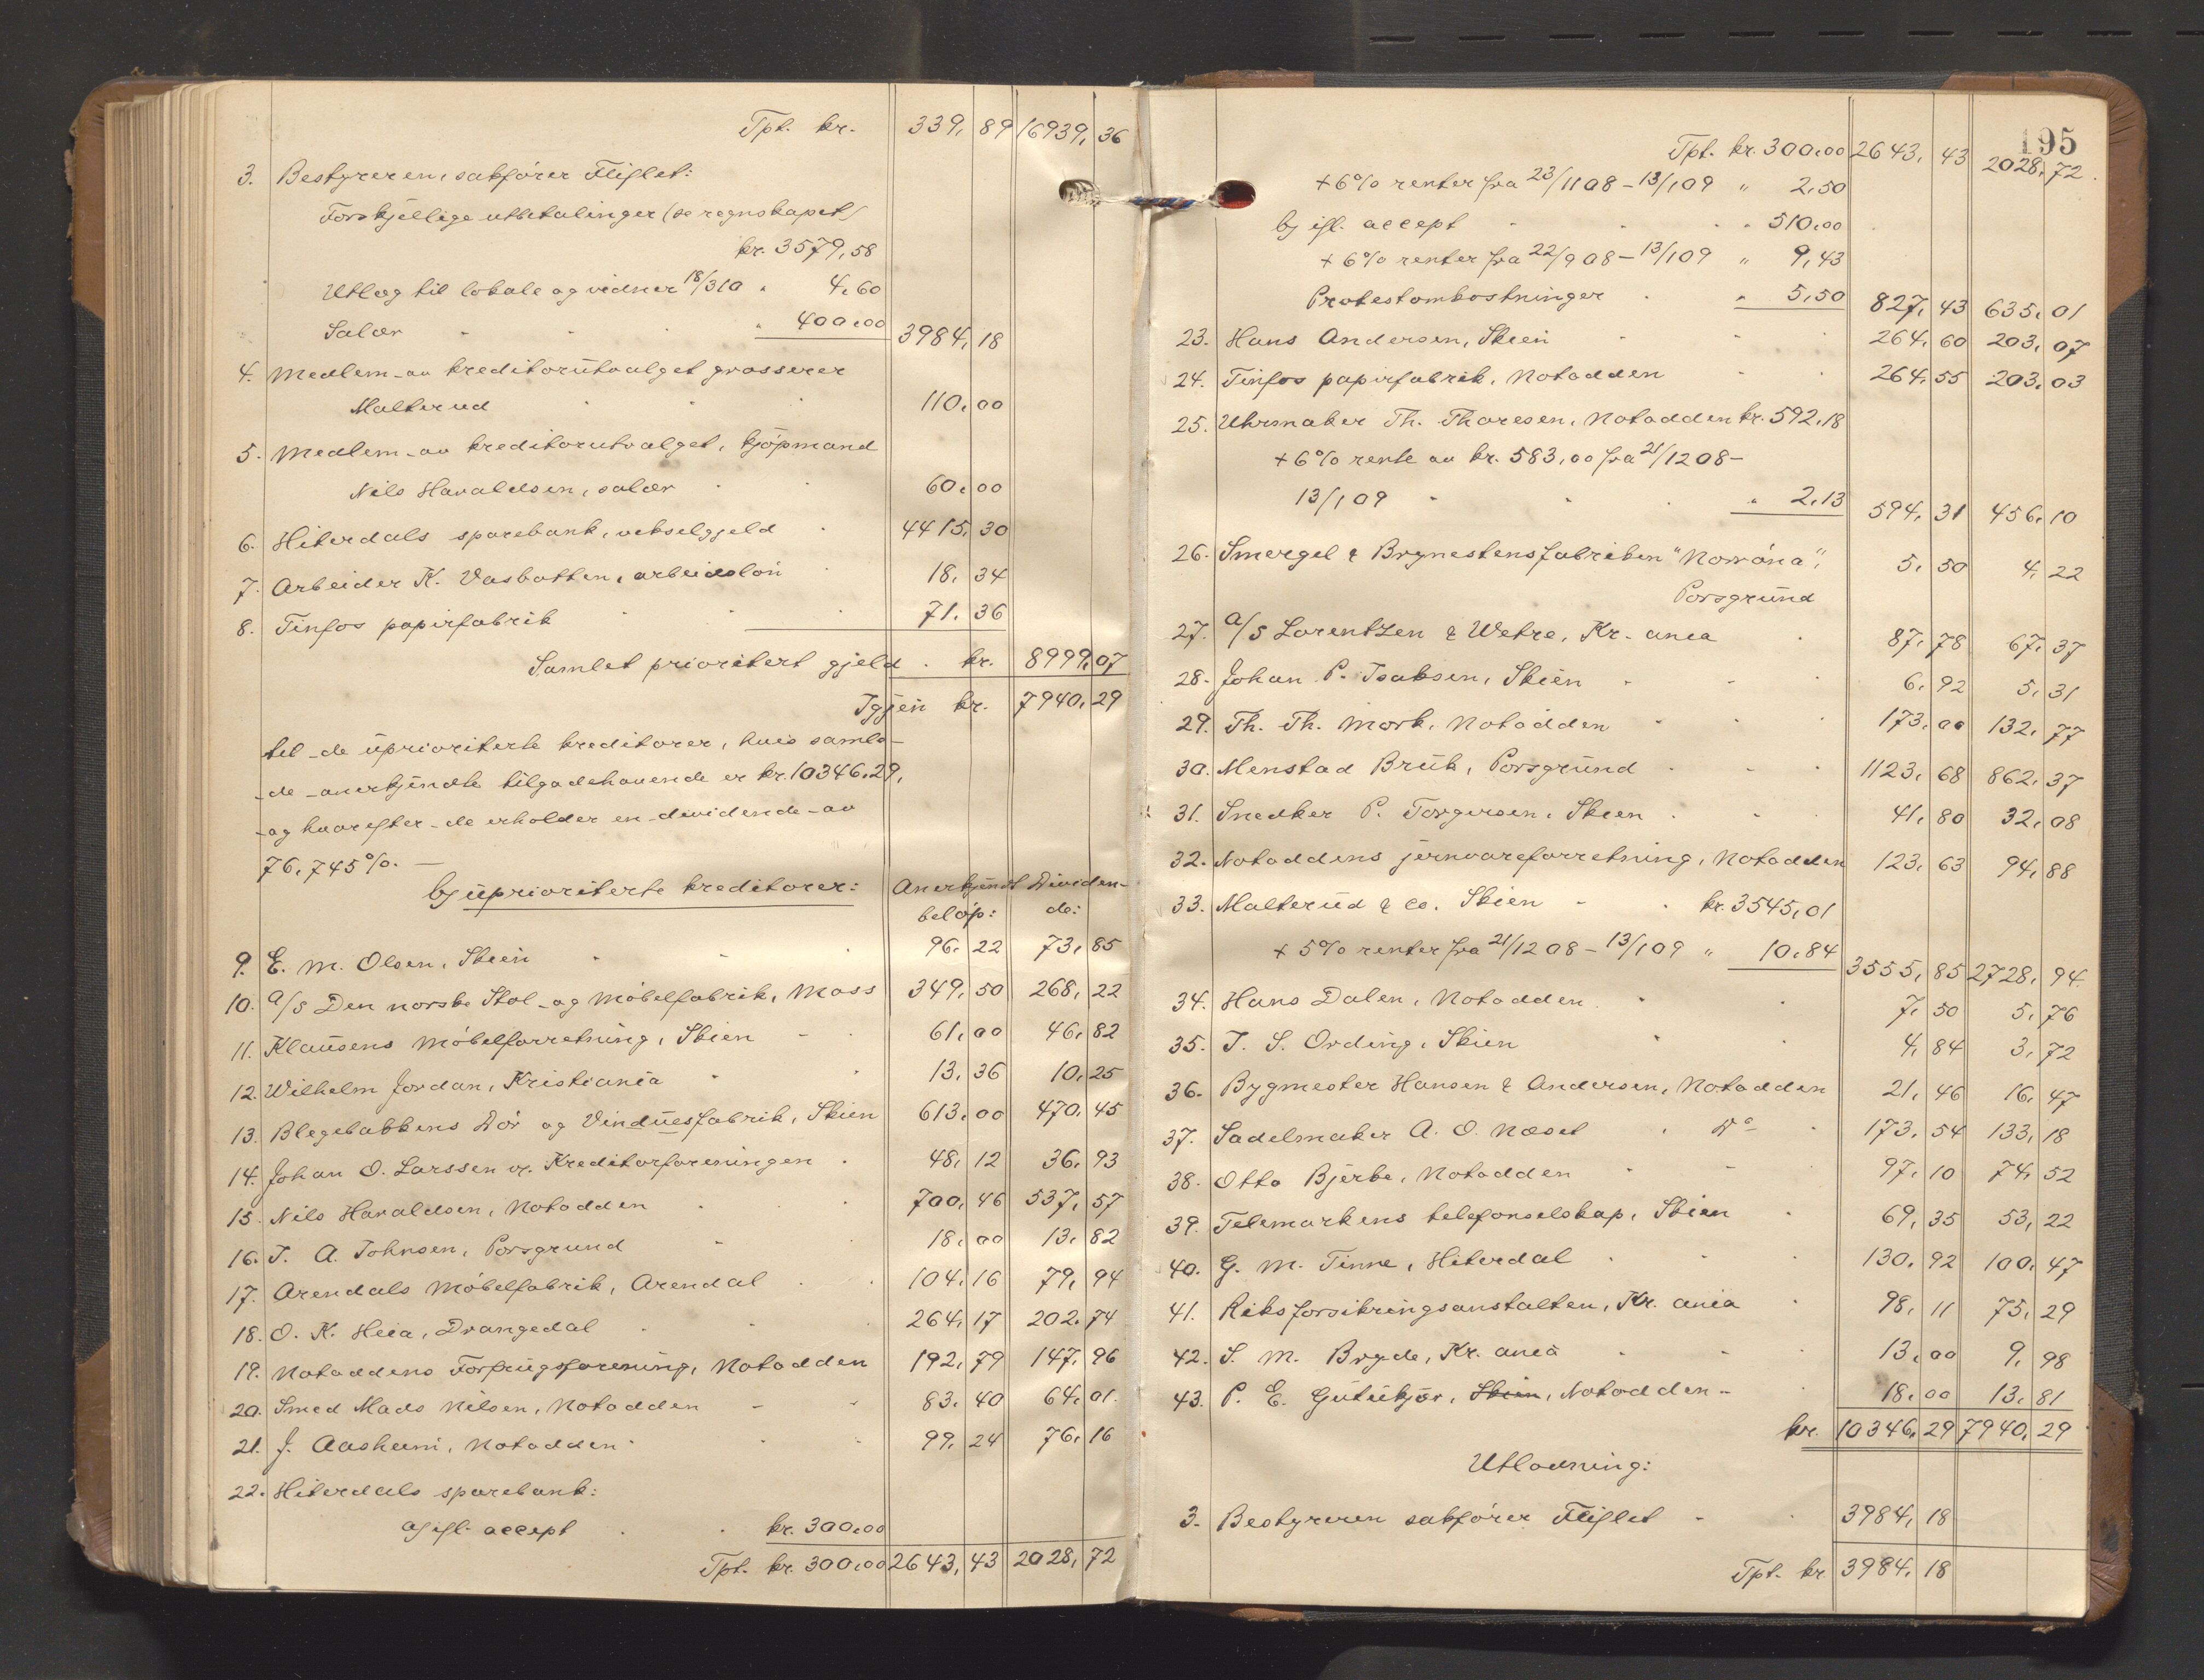 Tpt. kr. 339,89 16939,36
3. Bestyreren, sakfører Fliflet:
Forskjellige utbetalinger (se regnskapet)
kr. 3579,58
Utlæg til lokale og vidner 18/3 10 " 4,60
Salær " 400,00 3984,18
4. Medlem av kreditorutvalget grosserer
Malterud 110,00
5. Medlem av kreditorutvalget, kjøpmand
Nils Haraldsen, salær 60,00
6. Hiterdals sparebank, vekselgjeld 4415,30
7. Arbeider K. Vasbotten, arbeidsløn 18,34
8. Tinfos papirfabrik 71,36
Samlet prioritert gjeld kr. 8999,07
Igjen kr. 7940,29
til de uprioriterte kreditorer, hvis samle-
de anerkjendte tilgodehavende er kr. 10346,29,
og hvorefter de erholder en dividende av
76,745%. —
b) uprioriterte kreditorer: Anerkjendt Dividen-
beløp: de:
9. E. M. Olsen, Skien 96,22 73,85
10. A/S Den norske Stol- og Møbelfabrik, Moss 349,50 268,22
11. Klausens Møbelforretning, Skien 61,00 46,82
12. Wilhelm Jordan, Kristiania 13,36 10,25
13. Blegebakkens Dør og Vinduesfabrik, Skien 613,00 470,45
14. Johan O. Larssen v. Kreditorforeningen 48,12 36,93
15. Nils Haraldsen, Notodden 700,46 537,57
16. J. A. Johnsen, Porsgrund 18,00 13,82
17. Arendals Møbelfabrik, Arendal 104,16 79,94
18. O. K. Heia, Drangedal 264,17 202,74
19. Notoddens Forbrugsforening, Notodden 192,79 147,96
20. Smed Mads Nilsen, Notodden 83,40 64,01
21. J. Aasheim, Notodden 99,24 76,16
22. Hiterdals sparebank:
a) ifl. accept kr. 300,00
Tpt. kr. 300,00 2643,43 2028,72
195
Tpt. kr. 300,00 2643,43 2028,72
+ 6% renter fra 23/11 08 - 13/1 09 " 2,50
b) ifl. accept " 510,00
+ 6% renter fra 22/9 08 - 13/1 09 " 9,43
Protestomkostninger " 5,50 827,43 635,01
23. Hans Andersen, Skien 264,60 203,07
24. Tinfos papirfabrik, Notodden 264,55 203,03
25. Uhrmaker Th. Thoresen, Notodden kr. 592,18
+ 6% rente av kr. 583,00 fra 21/12 08 -
13/1 09 " 2,13 594,31 456,10
26. Smergel & Brynestensfabriken "Norrøna",
Porsgrund 5,50 4,22
27. A/S Lorentzen & Wetre, Kr.ania 87,78 67,37
28. Johan P. Isaksen, Skien 6,92 5,31
29. Th. Th. Mork, Notodden 173,00 132,77
30. Menstad Bruk, Porsgrund 1123,68 862,37
31. Snedker P. Torgersen, Skien 41,80 32,08
32. Notoddens jernvareforretning, Notodden 123,63 94,88
33. Malterud & Co. Skien kr. 3545,01
+ 5% renter fra 21/12 08 - 13/1 09 " 10,84 3555,85 2728,94
34. Hans Dalen, Notodden 7,50 5,76
35. J. S. Ording, Skien 4,84 3,72
36. Bygmester Hansen & Andersen, Notodden 21,46 16,47
37. Sadelmaker A. O. Næset do 173,54 133,18
38. Otto Bjerke, Notodden 97,10 74,52
39. Telemarkens telefonselskap, Skien 69,35 53,22
40. G. M. Tinne, Hiterdal 130,92 100,47
41. Riksforsikringsanstalten, Kr.ania 98,11 75,29
42. S. M. Bryde, Kr.ania 13,00 9,98
43. P. E. Gutukjør, Skien, Notodden 18,00 13,81
kr. 10346,29 7940,29
Utlodning:
3. Bestyreren sakfører Fliflet 3984,18
Tpt. kr. 3984,18